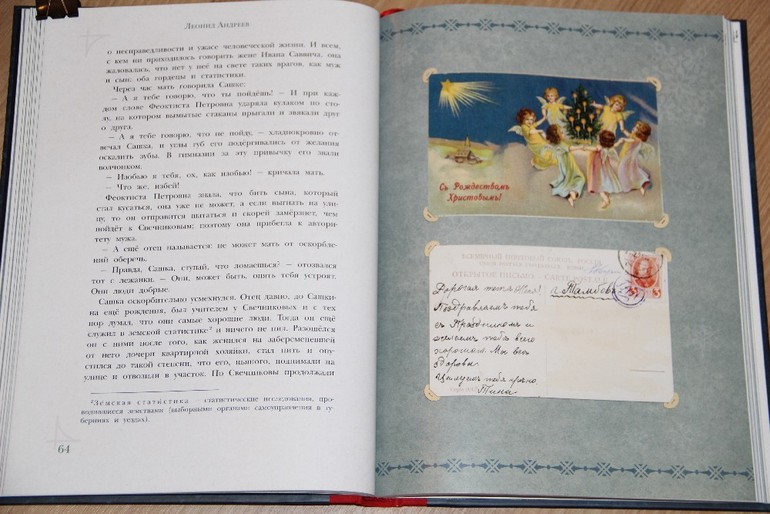 Леонид Андреев
о несправедливости и ужасе человеческой жизни. И всем,
с кем ни приходилось говорить жене Ивана Саввича, она
жаловалась, что нет у неё на свете таких врагов, как муж
и сын: оба гордецы и статистики.
Через час мать говорила Сашке:
— А я тебе говорю, что ты пойдёшь! — И при каж-
дом слове Феоктиста Петровна ударяла кулаком по сто-
лу, на котором вымытые стаканы прыгали и звякали друг
о друга.
— А я тебе говорю, что не пойду, — хладнокровно от-
вечал Сашка, и углы губ его подёргивались от желания
оскалить зубы. В гимназии за эту привычку его звали
волчонком.
— Изобью я тебя, ох, как изобью! — кричала мать.
— Что же, избей!
Феоктиста Петровна знала, что бить сына, который
стал кусаться, она уже не может, а если выгнать на ули-
цу, то он отправится шататься и скорей замёрзнет, чем
пойдёт к Свечниковым; поэтому она прибегла к автори-
тету мужа.
— А ещё отец называется: не может мать от оскорбле-
ний оберечь.
— Правда, Сашка, ступай, что ломаешься? — отозвался
тот с лежанки. — Они, может быть, опять тебя устроят.
Они люди добрые.
Сашка оскорбительно усмехнулся. Отец давно, до Сашки-
на ещё рождения, был учителем у Свечниковых и с тех
пор думал, что они самые хорошие люди. Тогда он ещё
служил в земской статистике³ и ничего не пил. Разошёлся
он с ними после того, как женился на забеременевшей
от него дочери квартирной хозяйки, стал пить и опу-
стился до такой степени, что его, пьяного, поднимали на
улице и отвозили в участок. Но Свечниковы продолжали
Земская статистика — статистические исследования, про-
водившиеся земствами (выборными органами самоуправления в гу-
берниях и уездах).
64
Съ Рождествомъ
Христовымъ!
ВСЕМІРНЫЙ ПОЧТОВЫЙ СОЮЗЪ. РОССІЯ
ОТКРЫТОЕ ПИСЬМО
Дорогая тетя
г. Тамбовъ
Поздравляемъ тебя
съ Праздникомъ и
желаемъ тебѣ всего
хорошаго. Мы всѣ
здоровы.
Цѣлуемъ тебя крѣпко